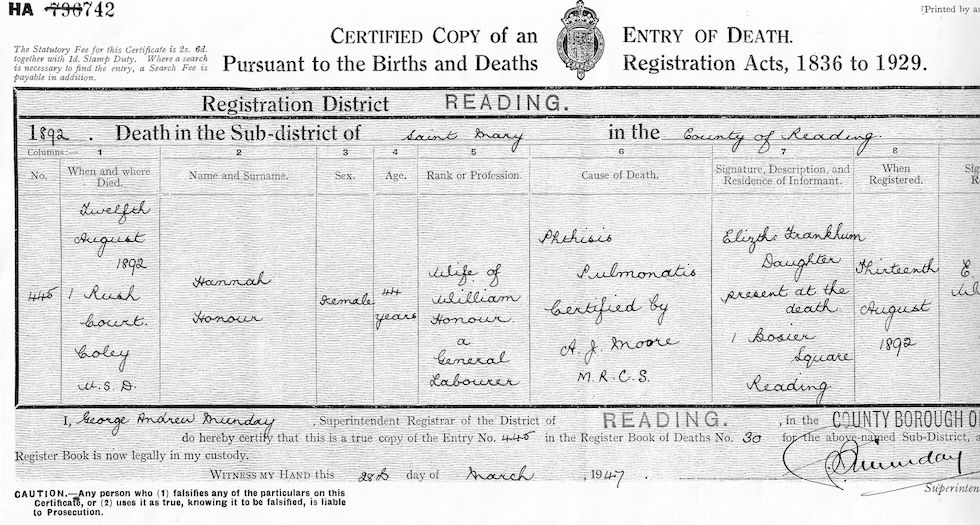 HA 796742
[Printed by
The Statutory Fee for this Certificate is 2s. 6d.
together with 1d. Stamp Duty. Where a search
is necessary to find the entry, a Search Fee is
payable in addition.
CERTIFIED COPY of an ENTRY OF DEATH.
Pursuant to the Births and Deaths Registration Acts, 1836 to 1929.
Registration District READING.
1892. Death in the Sub-district of Saint Mary in the County of Reading.
Columns:— 1 2 3 4 5 6 7 8
No. When and where Died. Name and Surname. Sex. Age. Rank or Profession. Cause of Death. Signature, Description, and Residence of Informant. When Registered.
445
Twelfth
August
1892
1 Rush
Court.
Coley
U.S.D.
Hannah
Honour
Female
44
years
Wife of
William
Honour.
a
General
Labourer
Phthisis
Pulmonatis
Certified by
A. J. Moore
M.R.C.S.
Elizth Frankhum
Daughter
present at the
death
1 Bosier
Square
Reading
Thirteenth
August
1892
I, George Andrew Munday, Superintendent Registrar of the District of READING., in the COUNTY BOROUGH
do hereby certify that this is a true copy of the Entry No. 445 in the Register Book of Deaths No. 30 for the above-named Sub-District,
Register Book is now legally in my custody.
WITNESS MY HAND this 28th day of March, 1947,
Munday
CAUTION.—Any person who (1) falsifies any of the particulars on this
Certificate, or (2) uses it as true, knowing it to be falsified, is liable
to Prosecution.